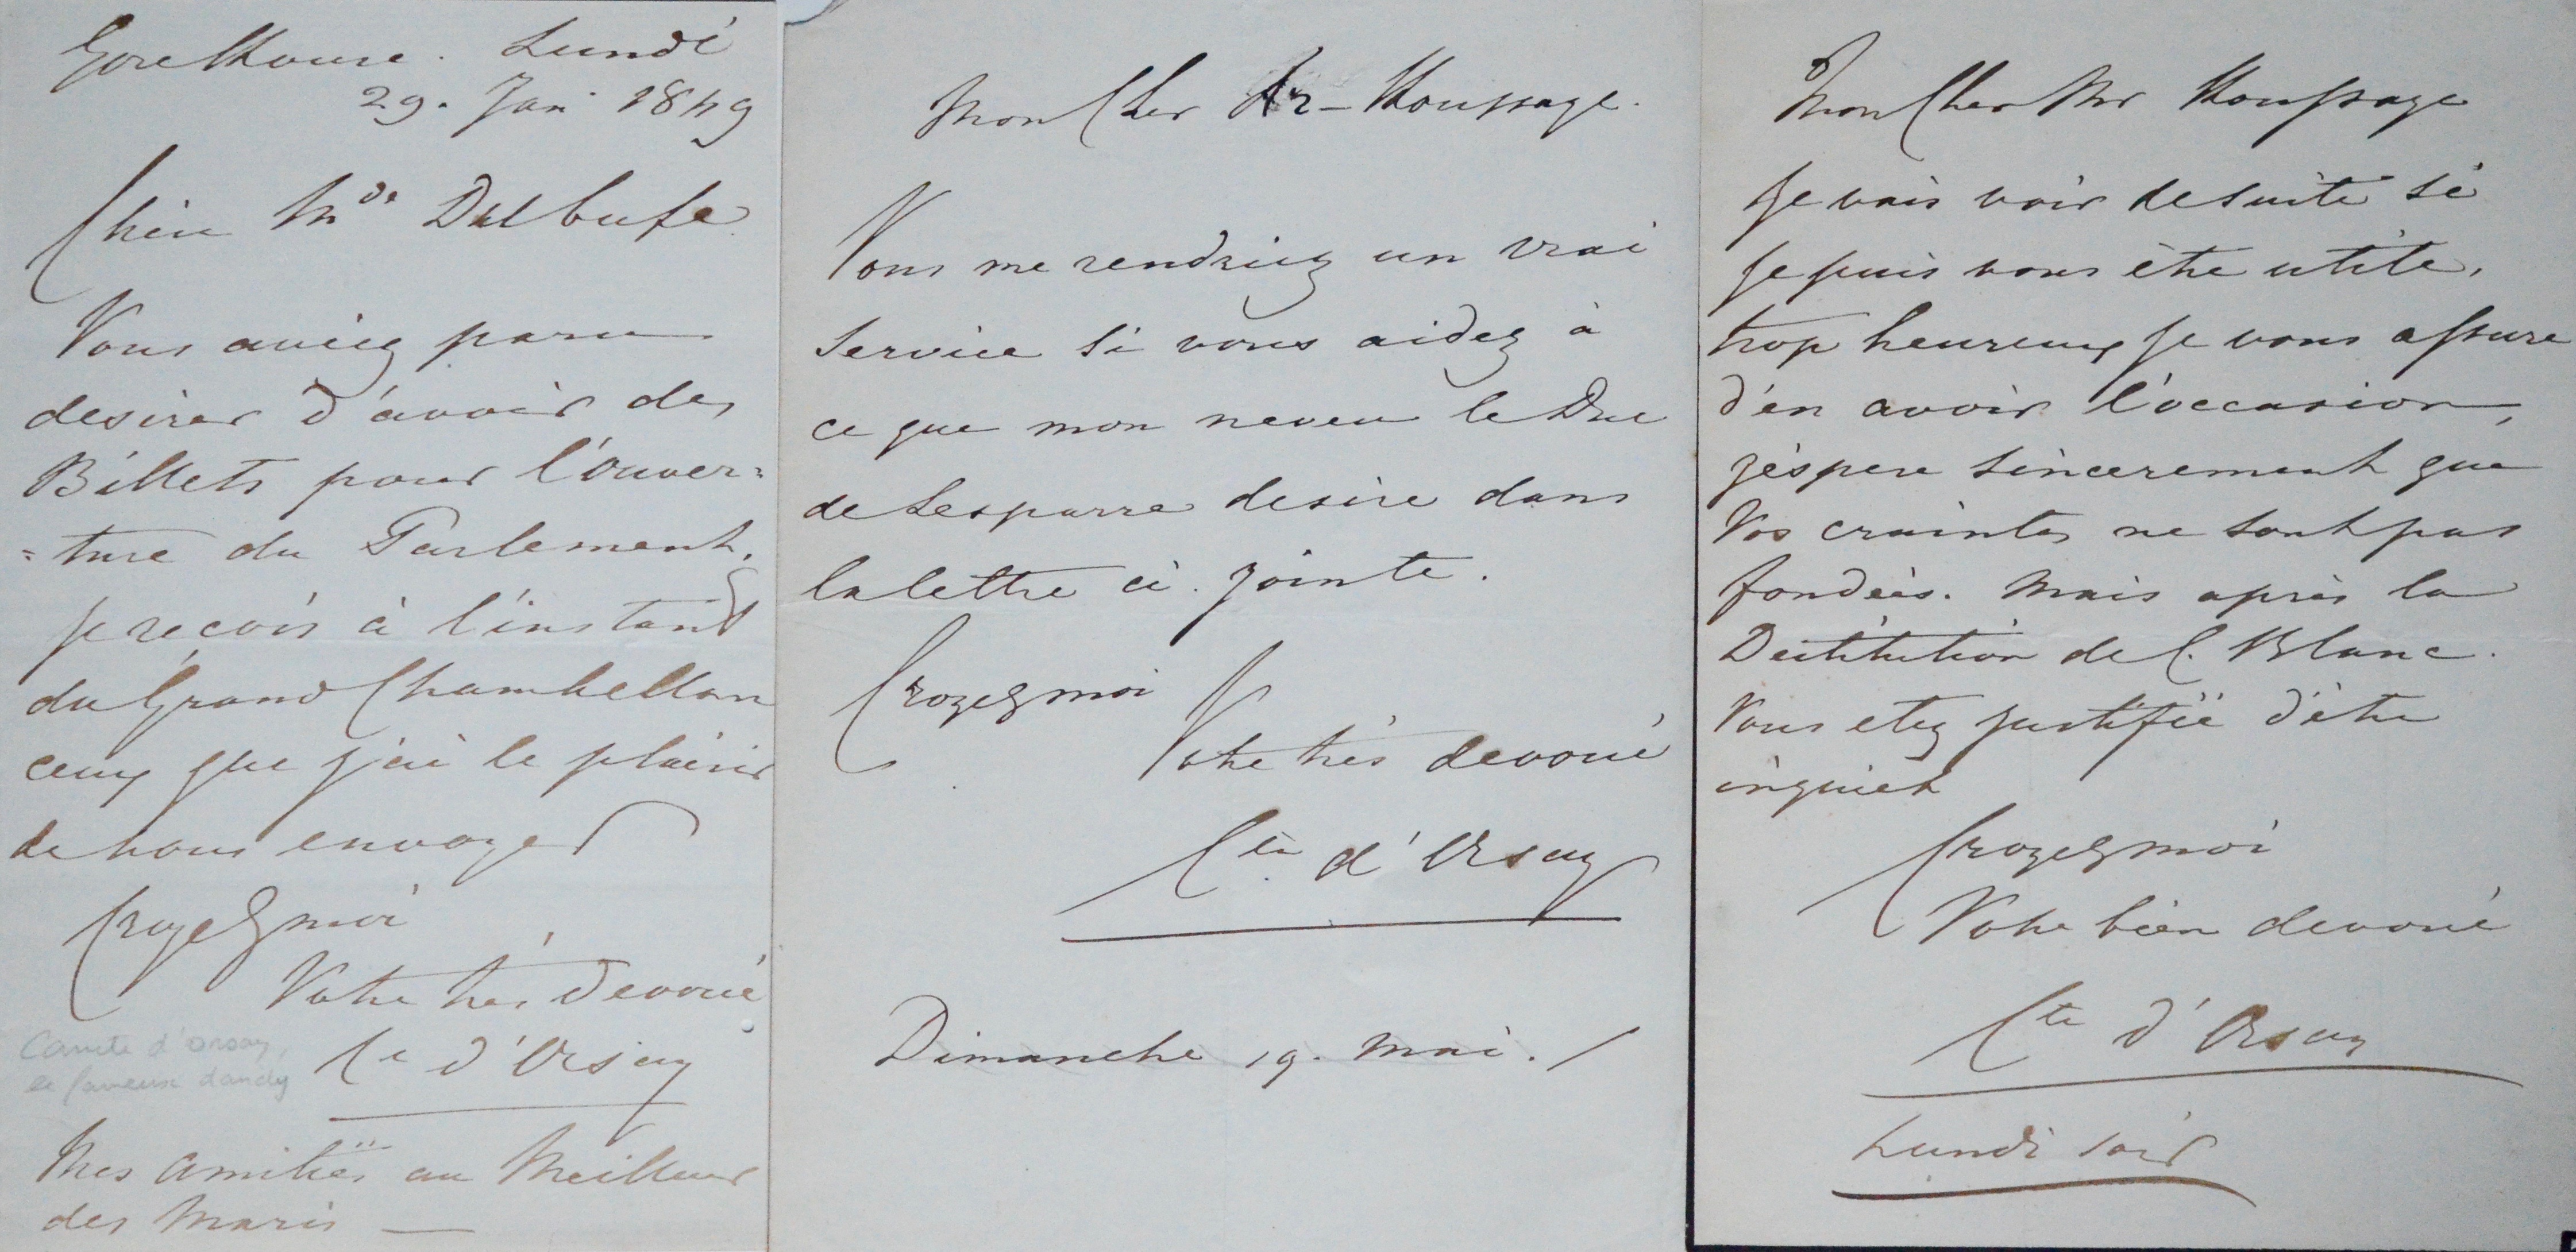 Gore House. Lundi
29. Jan 1849
Chère Mde Dubufe
Vous aviez paru
desirer d'avoir des
Billets pour l'ouver=
=ture du Parlement,
je reçois à l'instant
du Grand Chambellan
ceux que j'ai le plaisir
de vous envoyer
Croyez moi
Votre très devoué
Cte d'Orsay
Comte d'Orsay,
le fameux dandy
Mes amitiés au Meilleur
des Maris —
Mon Cher Mr Houssaye.
Vous me rendriez un vrai
service si vous aidez à
ce que mon neveu le Duc
de Lesparre desire dans
la lettre ci. jointe.
Croyez moi
Votre très devoué
Cte d'Orsay
Dimanche 19. Mai. /
Mon Cher Mr Houssaye
Je vais voir de suite si
je puis vous être utile,
trop heureux je vous assure
d'en avoir l'occasion,
j'éspere sincerement que
Vos craintes ne sont pas
fondeés. Mais après la
Destitution de C. Blanc.
Vous etez justifié d'être
inquiet
Croyez moi
Votre bien devoué
Cte d'Orsay
Lundi soir